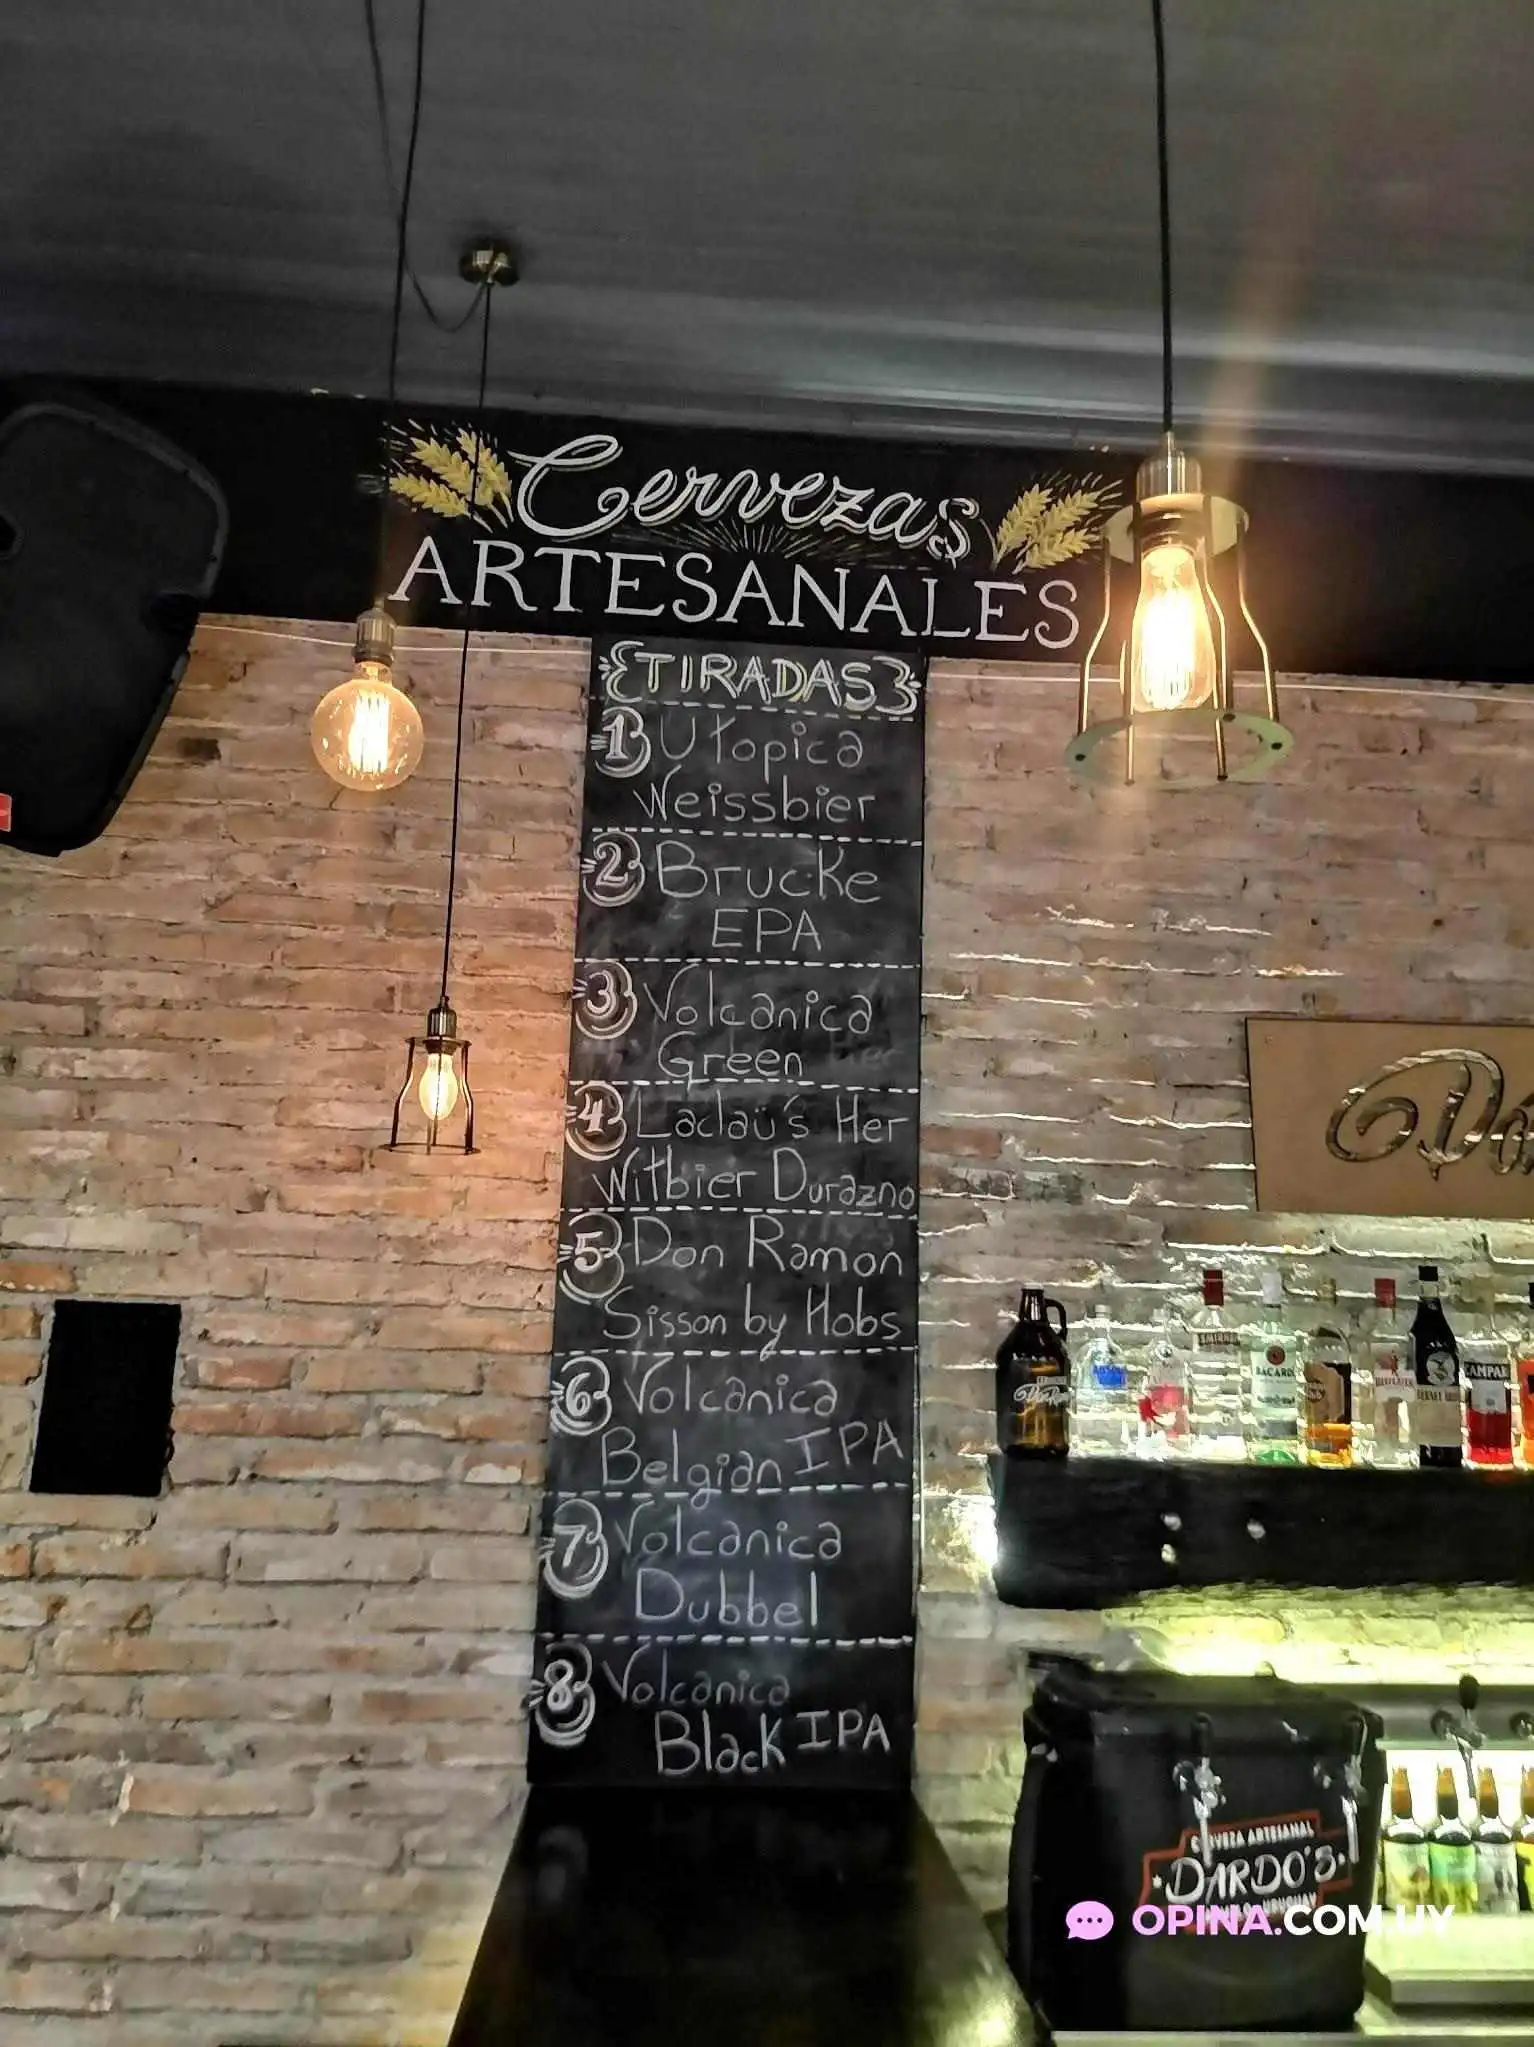 Cervezas
ARTESANALES
TIRADAS
1 Utopica
Weissbier
2 Brucke
EPA
3 Volcanica
Green
4 Laclau's Her
Witbier Durazno
5 Don Ramon
Sisson by Hobs
6 Volcanica
Belgian IPA
7 Volcanica
Dubbel
8 Volcanica
Black IPA
ABSOLUT
SMIRNOFF
BACARDI
BEEFEATER
FERNET
CAMPARI
CERVEZA ARTESANAL
DARDO'S
URUGUAY
OPINA.COM.UY